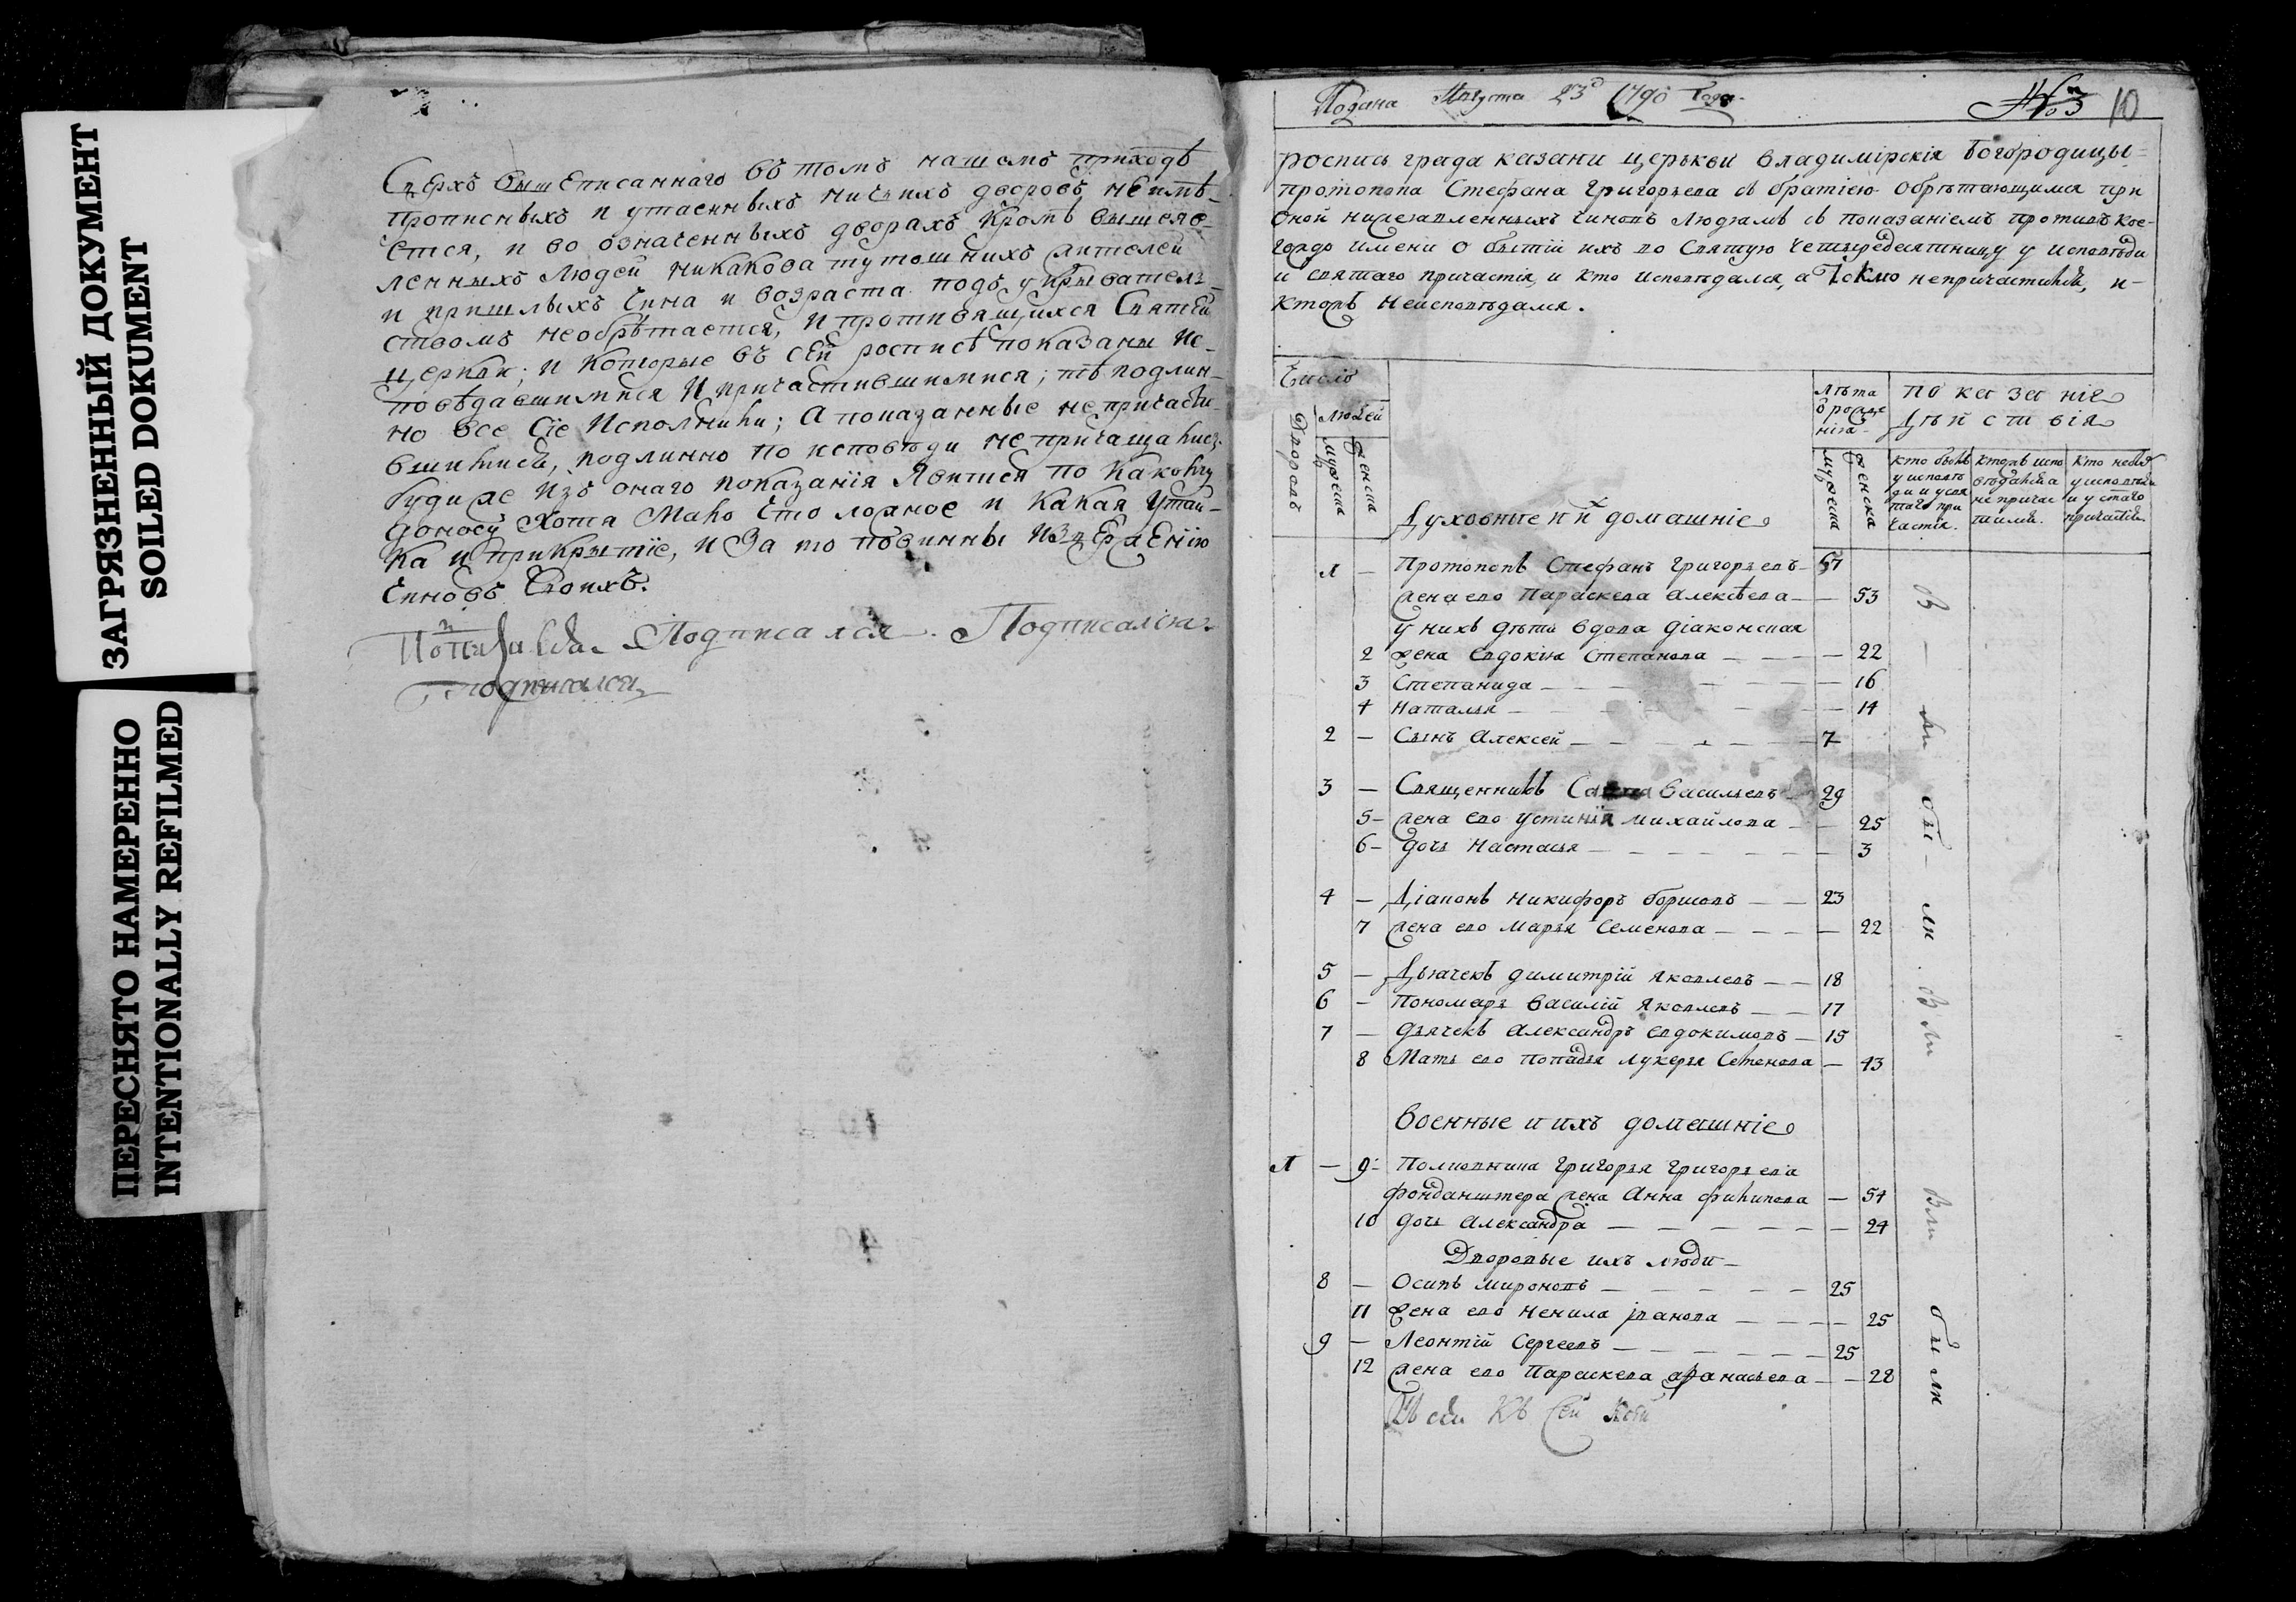 ЗАГРЯЗНЕННЫЙ ДОКУМЕНТ
SOILED DOKUMENT
ПЕРЕСНЯТО НАМЕРЕННО
INTENTIONALLY REFILMED
Сверхъ вышеписаннаго въ томъ нашемъ приходѣ
прописныхъ и утаенныхъ ничьихъ дворовъ неимѣ-
ется, и во означенныхъ дворахъ кромѣ вышеяв-
ленныхъ людей никакова тутошнихъ жителей
и пришлыхъ чина и возраста подъ укрыватель-
ствомъ необрѣтается, и противящихся святей
церкви; и которые въ сей росписѣ показаны ис-
повѣдавшимися и причастившимися; тѣ подлин-
но все сіе исполнили; а показанные непричасти-
вшимись, подлинно по исповѣди непричащались.
буди же изъ онаго показанія явится по какому
доносу хотя мало что ложное и какая утай-
ка и прикрытіе, и за то повинны извержению
чиновъ своихъ.
Подписался Подписался
подписался
Подана Августа 23д 1790 Года
№ 3 10
роспись града казани церькви владимірскія богородицы
протопопа Стефана Григорьева съ братіею обрѣтающимся при
оной нижеявленныхъ чиновъ людямъ съ показаніемъ противъ кое-
гождо имени о бытіи ихъ во святую четыредесятницу у исповѣди
и святаго причастія, и кто исповѣдался, а токмо непричастился, и
ктожъ неисповѣдался.
Число
Дворовъ
людей
мужеска
женска
Лѣта
ѿ рожде
нія
мужеска
женска
показаніе
дѣйствія
кто былъ
у исповѣ
ди и свя
таго при
частія.
ктожъ испо
вѣдался а
непричас
тился.
кто небылъ
у исповѣди
и у стаго
причастія
Духовные и их домашніе
1 — Протопопъ Стефанъ Григорьевъ 57
жена ево Параскева Алексѣева — 53
у нихъ дѣти вдова діаконская
2 жена Евдокія Степанова — 22
3 Степанида — 16
4 Наталья — 14
2 — Сынъ Алексей — 7
3 — Священникъ Васильевъ 29
5 жена ево Устинія михайлова — 25
6 дочь Настасья — 3
4 — Діаконъ Никифоръ борисовъ — 23
7 жена ево марья Семенова — 22
5 — Дьячекъ димитрій Яковлевъ — 18
6 — Пономарь Василій Яковлевъ — 17
7 — Дьячекъ Александръ Евдокимовъ — 15
8 Мать ево попадья лукерья Семенова — 43
Военные и ихъ домашніе
1 — 9 Полковника Григорья Григорьева
фонданштера жена Анна филипова — 54
10 дочь Александра — 24
Дворовые ихъ люди
8 — Осипъ мироновъ — 25
11 жена ево Ненила іванова — 25
9 — Леонтій Сергеевъ — 25
12 жена ево Параскева афанасьева — 28
были
были